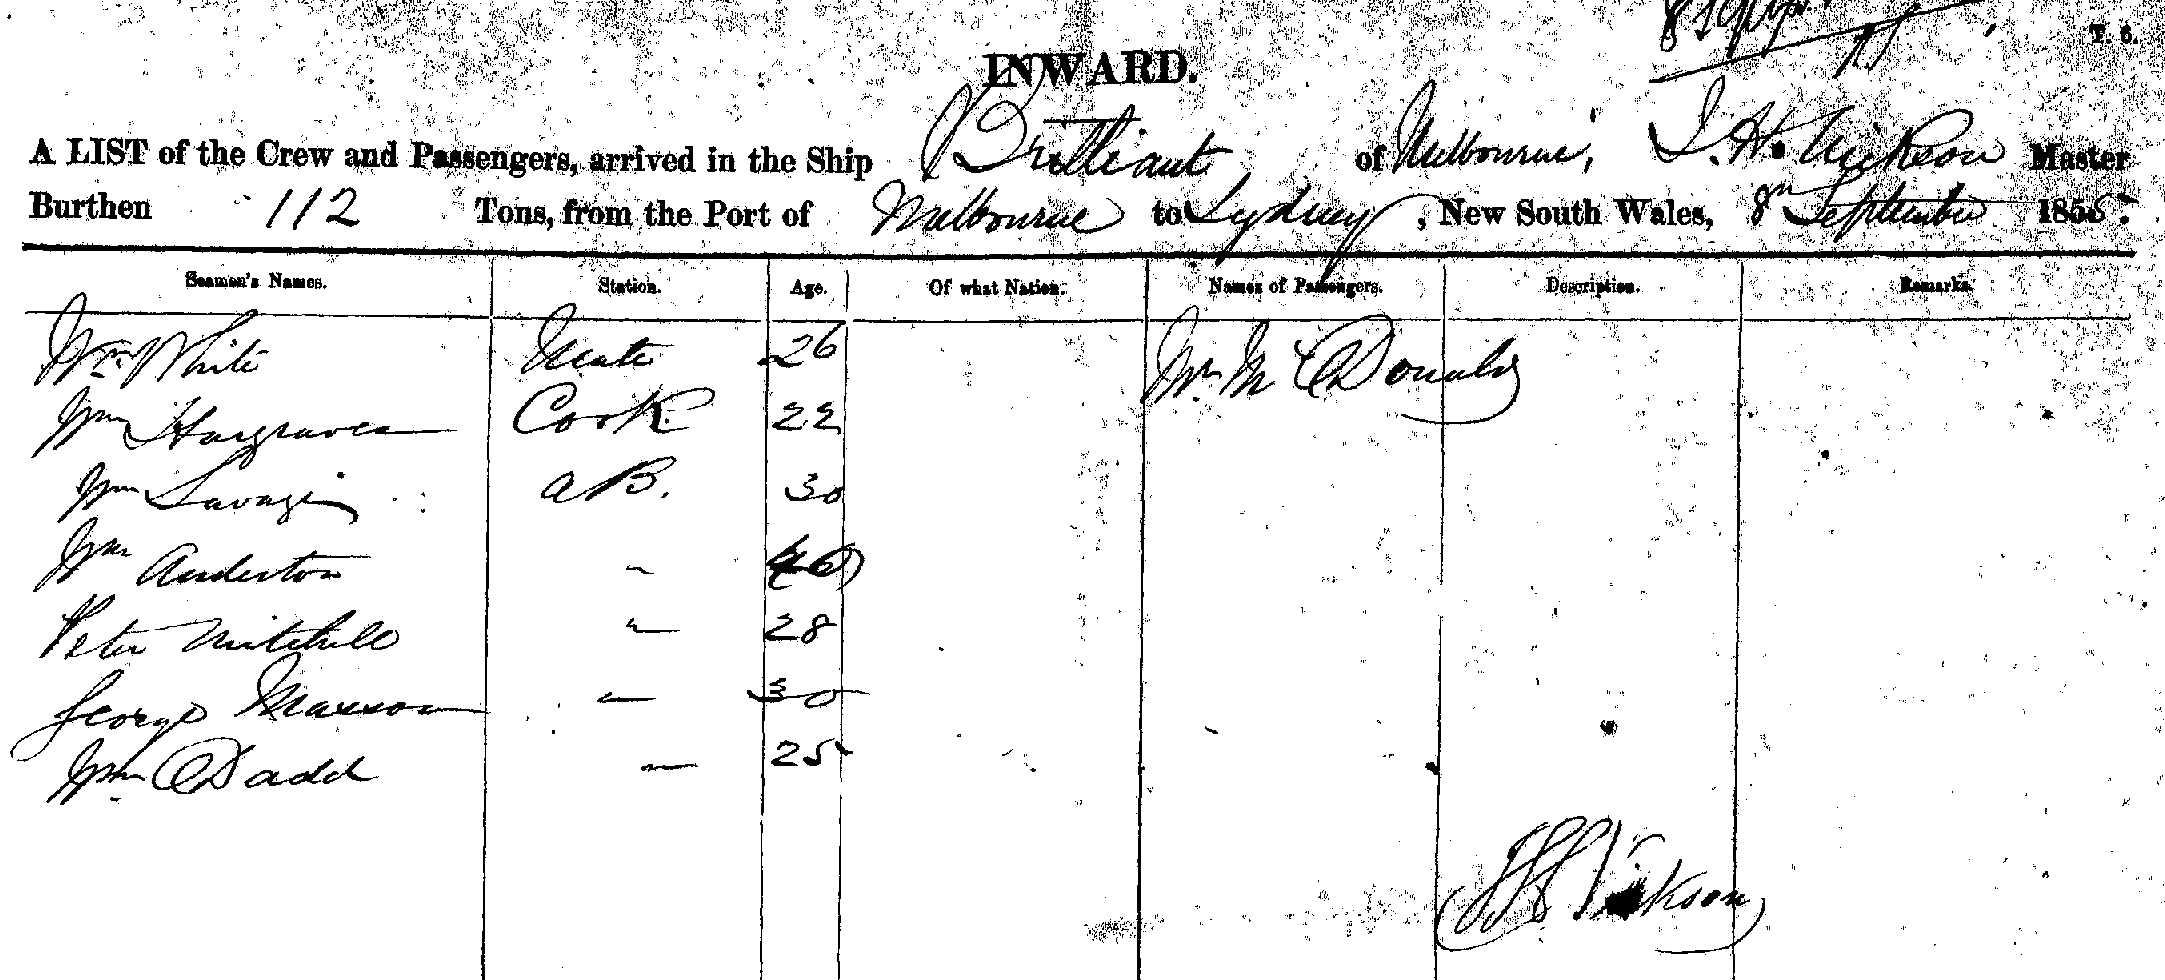 8 Sept
T. 6.
INWARD.
A LIST of the Crew and Passengers, arrived in the Ship Brilliant of Melbourne, J. H. Master
Burthen 112 Tons, from the Port of Melbourne to Sydney, New South Wales, 8th September 1855.
Seamen's Names. Station. Age. Of what Nation. Names of Passengers. Description. Remarks.
Wm White Mate 26 Mr. McDonald
Wm Hargraves Cook 22
Wm Savage AB. 30
Wm Anderton " 40
Peter Mitchell " 28
George Maxson " 30
Wm Dadd " 25